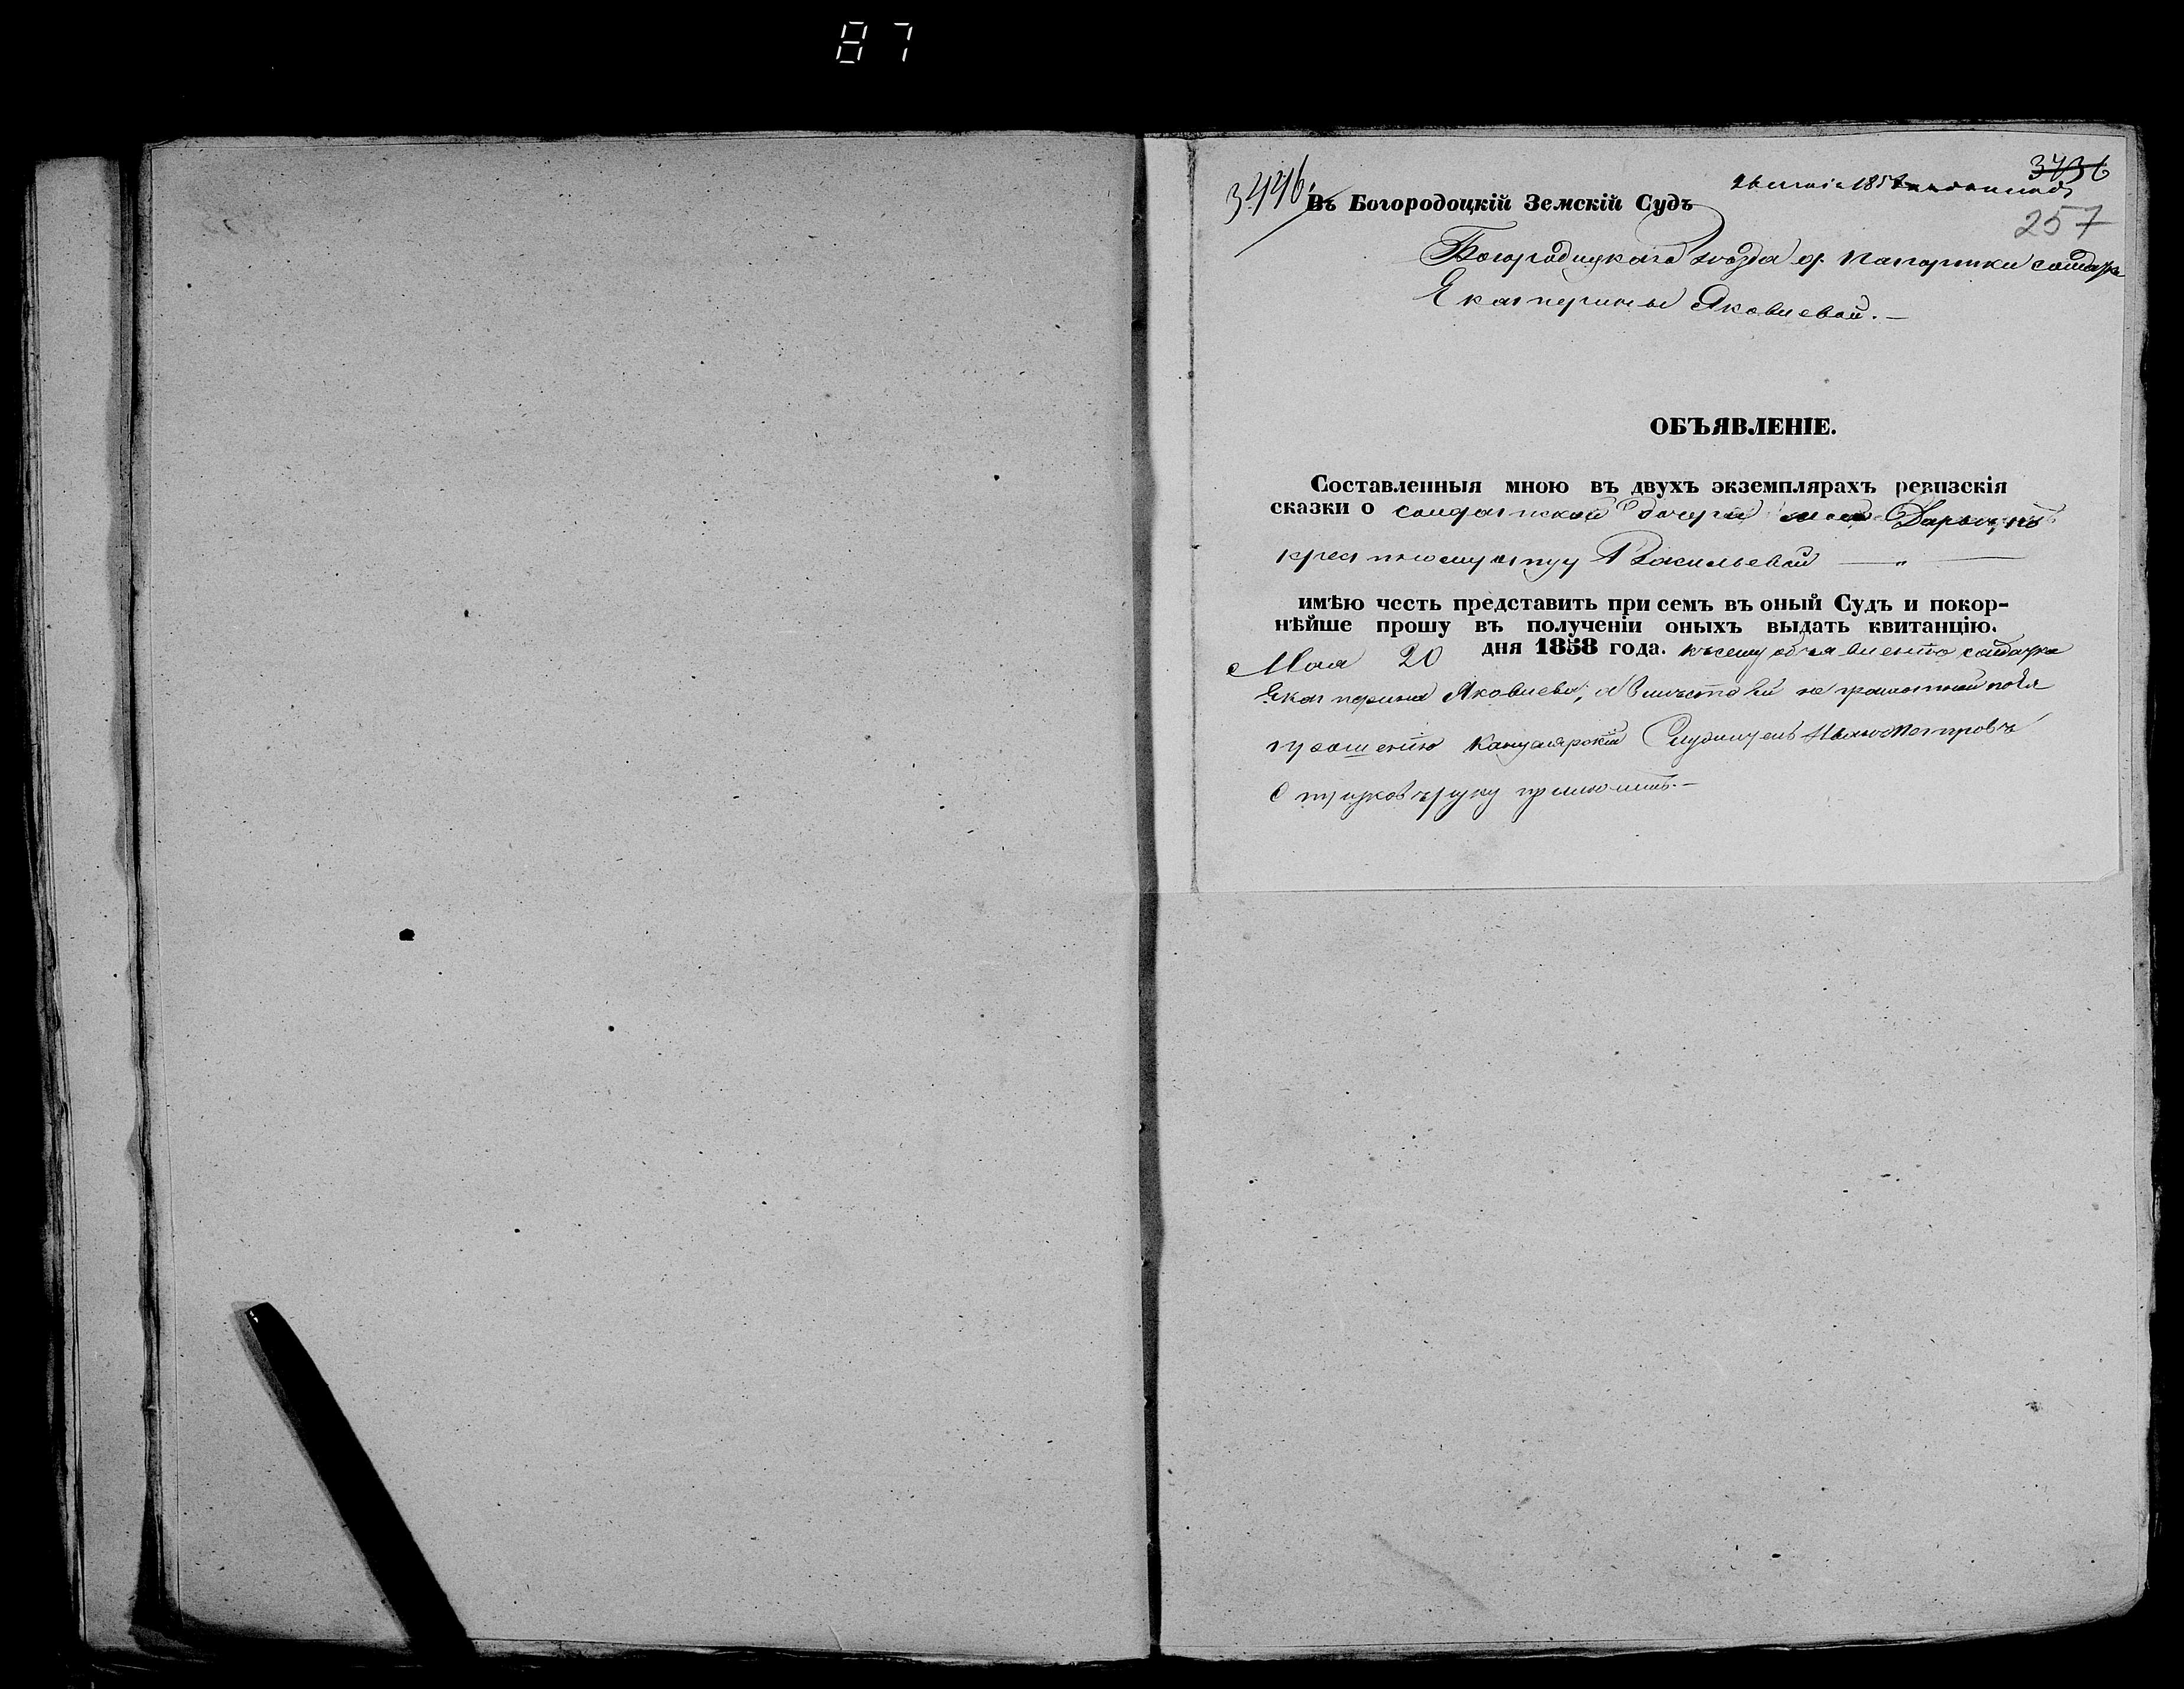 87
3436
1858
3,446.
Въ Богородоцкій Земскій Судъ
257
Богородицкаго уѣзда д. Папортки солдатки
Екатерины Яковлевой. —
ОБЪЯВЛЕНІЕ.
Составленныя мною въ двухъ экземплярахъ ревизскія
сказки о солдатской дочери Дарьи, по
крестному отцу Васильевой — „ —
имѣю честь представить при семъ въ оный Судъ и покор-
нѣйше прошу въ полученіи оныхъ выдать квитанцію.
Мая 20 дня 1858 года. къ сему объявленію солдатка
Екатерина Яковлева, а вмѣсто ей не грамотной по Ея
прошенію Канцелярскій Служитель Петровъ
руку приложилъ. —